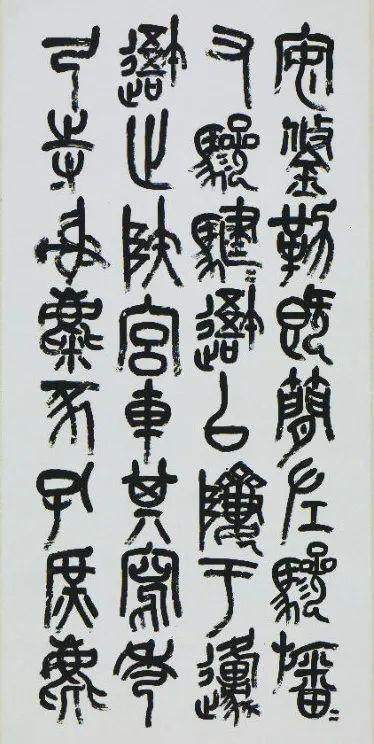 安鋚勒既簡左驂旛=
右驂騝=吾以隮于邍
吾止陝宮車其寫秀
弓寺射麋豕孔庶麀